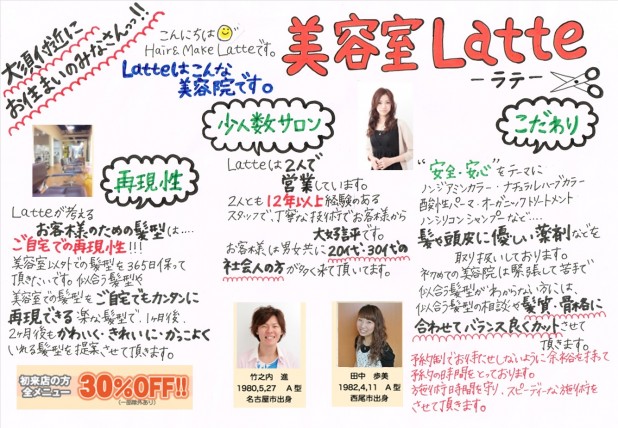 大須付近に
お住まいのみなさんっ!!
こんにちは
Hair & Make Latteです。
Latteはこんな
美容院です。
美容室Latte
-ラテ-
再現性
Latteが考える
お客様のための髪型は....
ご自宅での再現性!!!
美容室以外での髪型を365日保って
頂きたいです。似合う髪型や
美容室での髪型をご自宅でもカンタンに
再現できる楽な髪型で、1ヶ月後、
2ヶ月後もかわいく・きれいに・かっこよく
いれる髪型を提案させて頂きます。
初来店の方
全メニュー
30%OFF!!
(一部除外あり)
少人数サロン
Latteは2人で
営業しています。
2人とも12年以上経験のある
スタッフで、丁寧な技術でお客様から
大好評です。
お客様は男女共に20代、30代の
社会人の方が多く来て頂いてます。
竹之内 進
1980,5.27 A型
名古屋市出身
田中 歩美
1982,4.11 A型
西尾市出身
こだわり
"安全・安心"をテーマに
ノンジアミンカラー・ナチュラルハーブカラー
酸性パーマ・オーガニックトリートメント
ノンシリコンシャンプーなど....
髪や頭皮に優しい薬剤などを
取り扱いしております。
初めての美容院は緊張して苦手で
似合う髪型がわからない方には、
似合う髪型の相談や髪質・骨格に
合わせてバランス良くカットさせて
頂きます。
予約制でお待たせしないように余裕を持って
予約の時間をとっております。
施術時間を守り、スピーディーな施術を
させて頂きます。